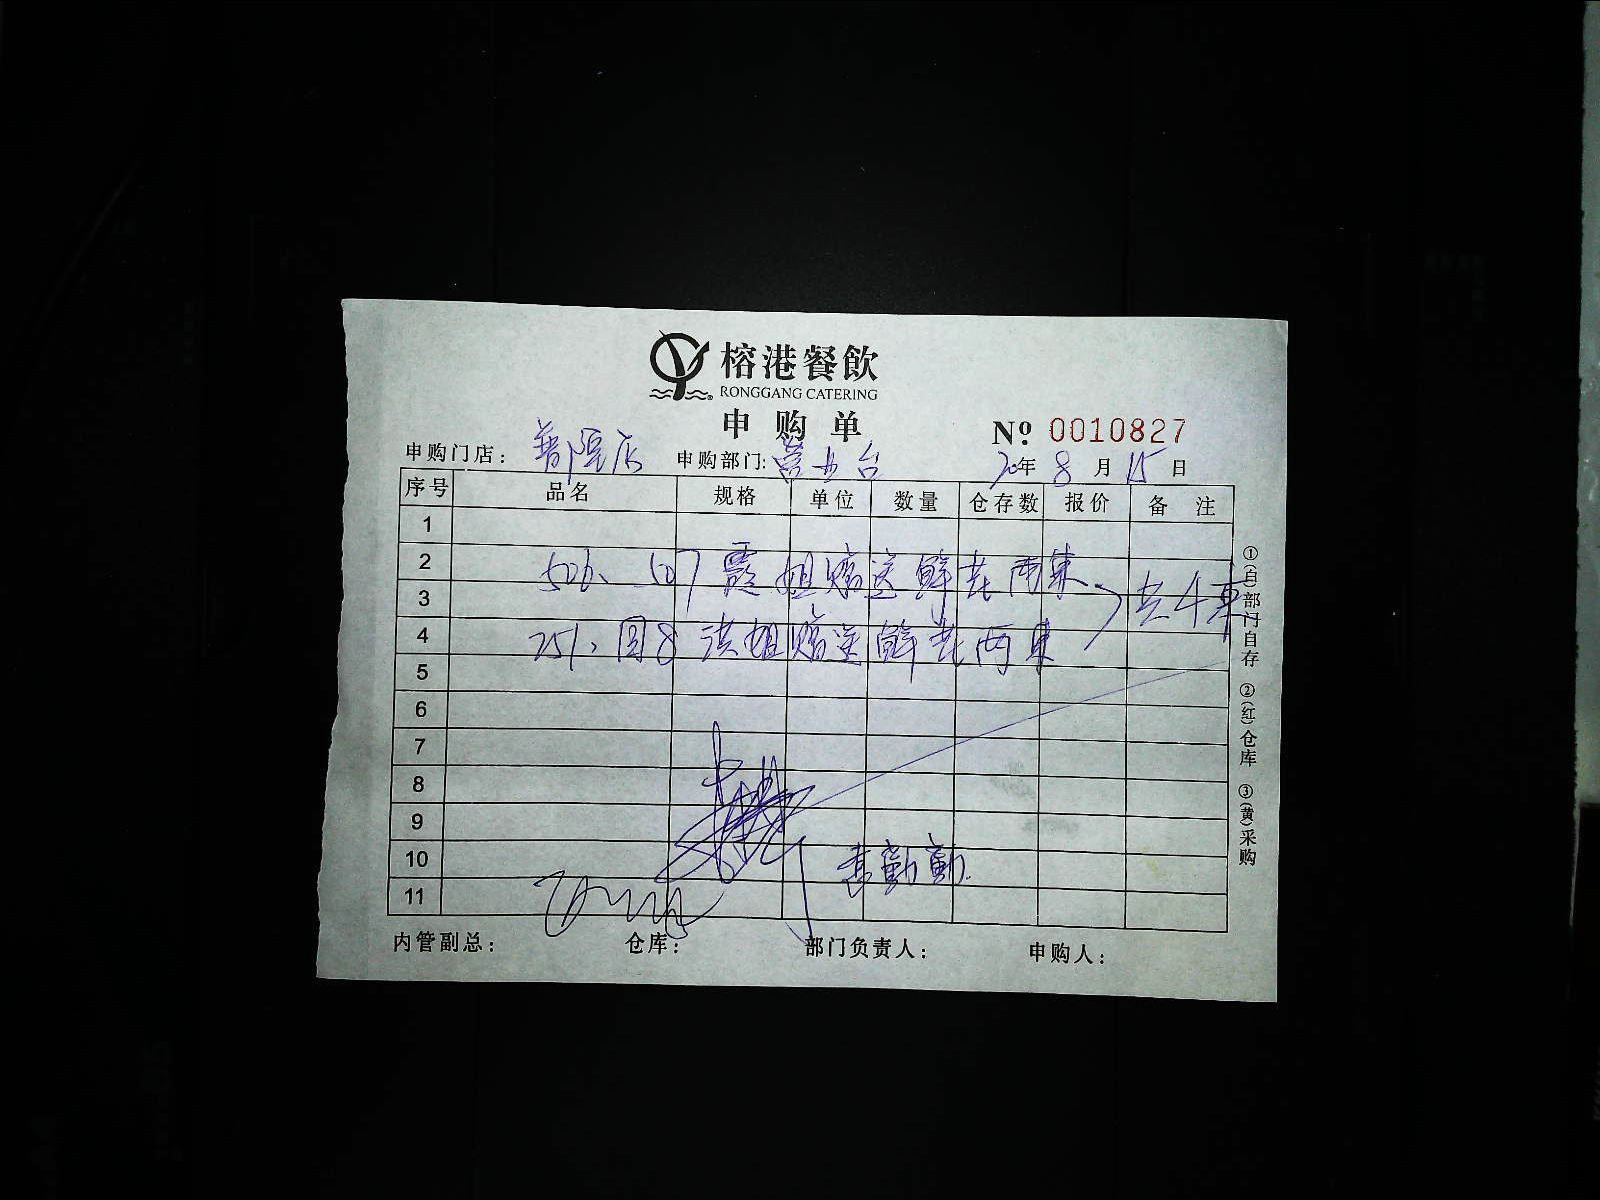 榕港餐飲
RONGGANG CATERING
申购单
№ 0010827
申购门店： 店 申购部门：营业台 20年 8 月 15 日
序号 品名 规格 单位 数量 仓存数 报价 备注
1
2 506、507 霞姐赠送鲜花两束
3 共4束
4 251、回8 洪姐赠送鲜花两束
5
6
7
8
9
10 勤勤
11
内管副总： 仓库： 部门负责人： 申购人：
①(白)部门自存 ②(红)仓库 ③(黄)采购